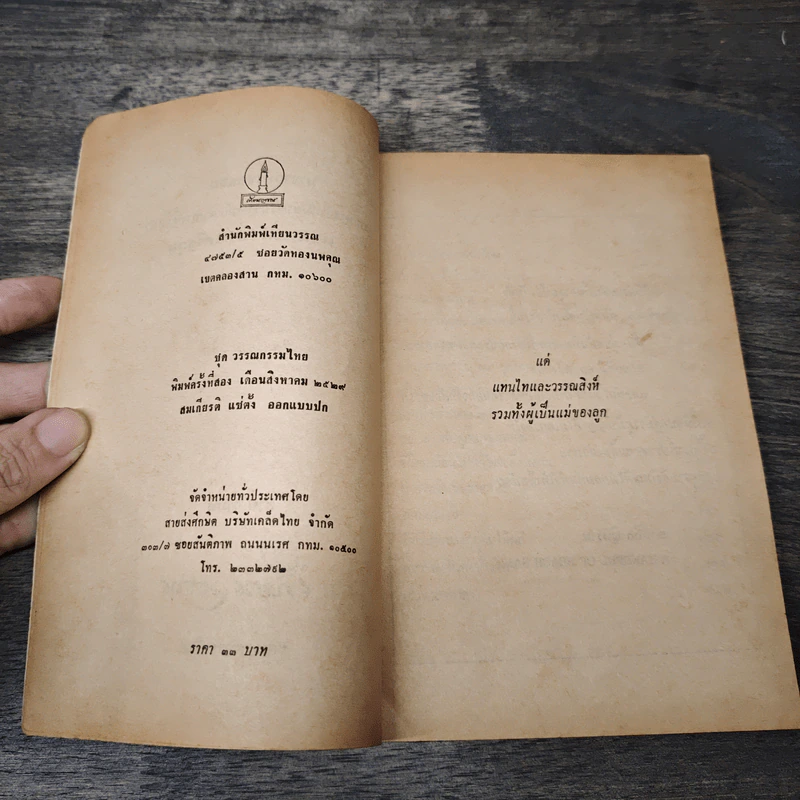 เทียนวรรณ
สำนักพิมพ์เทียนวรรณ
๔๗๕๓/๕ ซอยวัดทองนพคุณ
เขตคลองสาน กทม. ๑๐๖๐๐
ชุด วรรณกรรมไทย
พิมพ์ครั้งที่สอง เดือนสิงหาคม ๒๕๒๙
สมเกียรติ แซ่ตั้ง ออกแบบปก
จัดจำหน่ายทั่วประเทศโดย
สายส่งศึกษิต บริษัทเคล็ดไทย จำกัด
๓๐๓/๗ ซอยสันติภาพ ถนนนเรศ กทม. ๑๐๕๐๐
โทร. ๒๓๓๒๗๙๒
ราคา ๓๓ บาท
แด่
แทนไทและวรรณสิงห์
รวมทั้งผู้เป็นแม่ของลูก